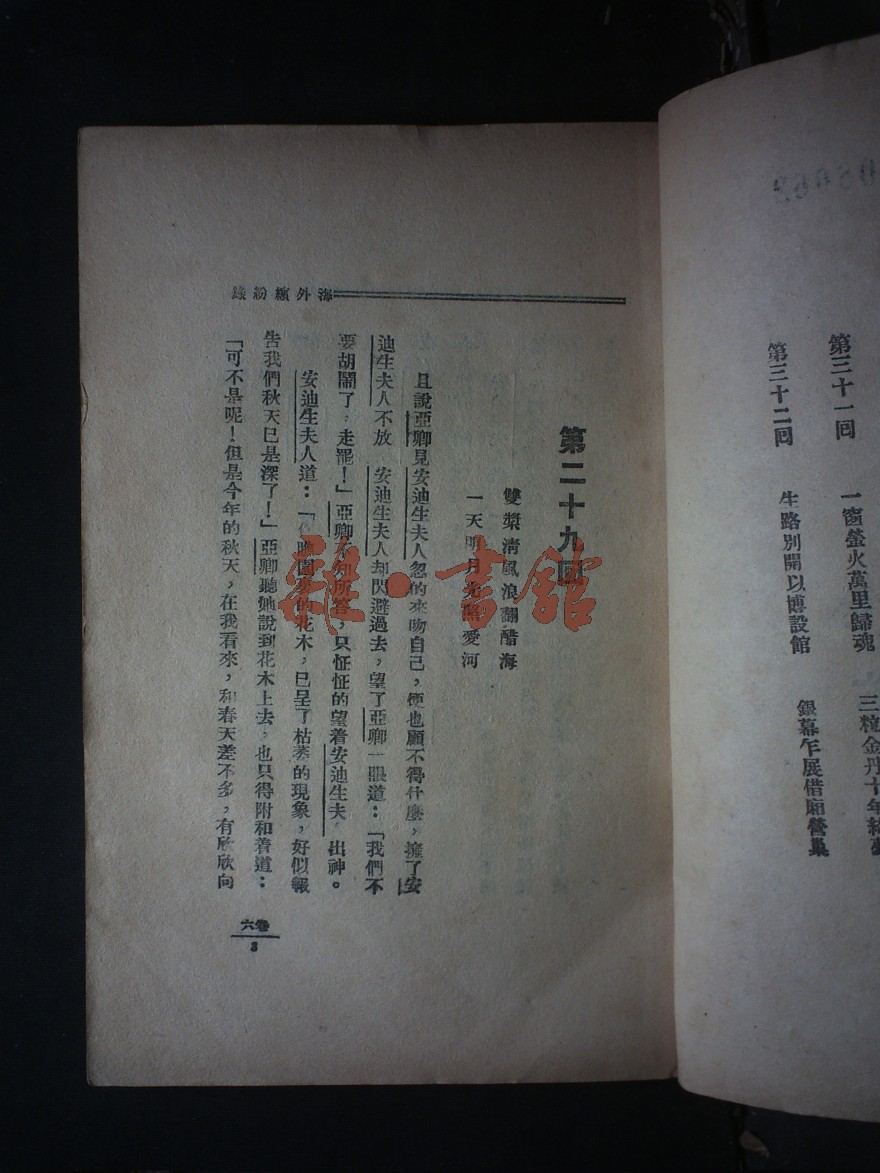 第三十一回 一窗螢火萬里歸魂 三粒金丹十年綺夢
第三十二回 生路別開以博設館 銀幕乍展借廂營巢
海外繽紛錄
第二十九回
雙槳清風浪翻醋海
一天明月光照愛河
且說亞卿見安迪生夫人忽的來吻自己，便也顧不得什麼，擁了安
迪生夫人不放 安迪生夫人却閃避過去，望了亞卿一眼道：「我們不
要胡鬧了，走罷！」亞卿不知所答，只怔怔的望着安迪生夫 出神。
安迪生夫人道：「 園 的花木，已呈了枯萎的現象，好似報
告我們秋天已是深了！」亞卿聽她說到花木上去，也只得附和着道：
「可不是呢！但是今年的秋天，在我看來，和春天差不多，有欣欣向
卷六
3
雜·書館